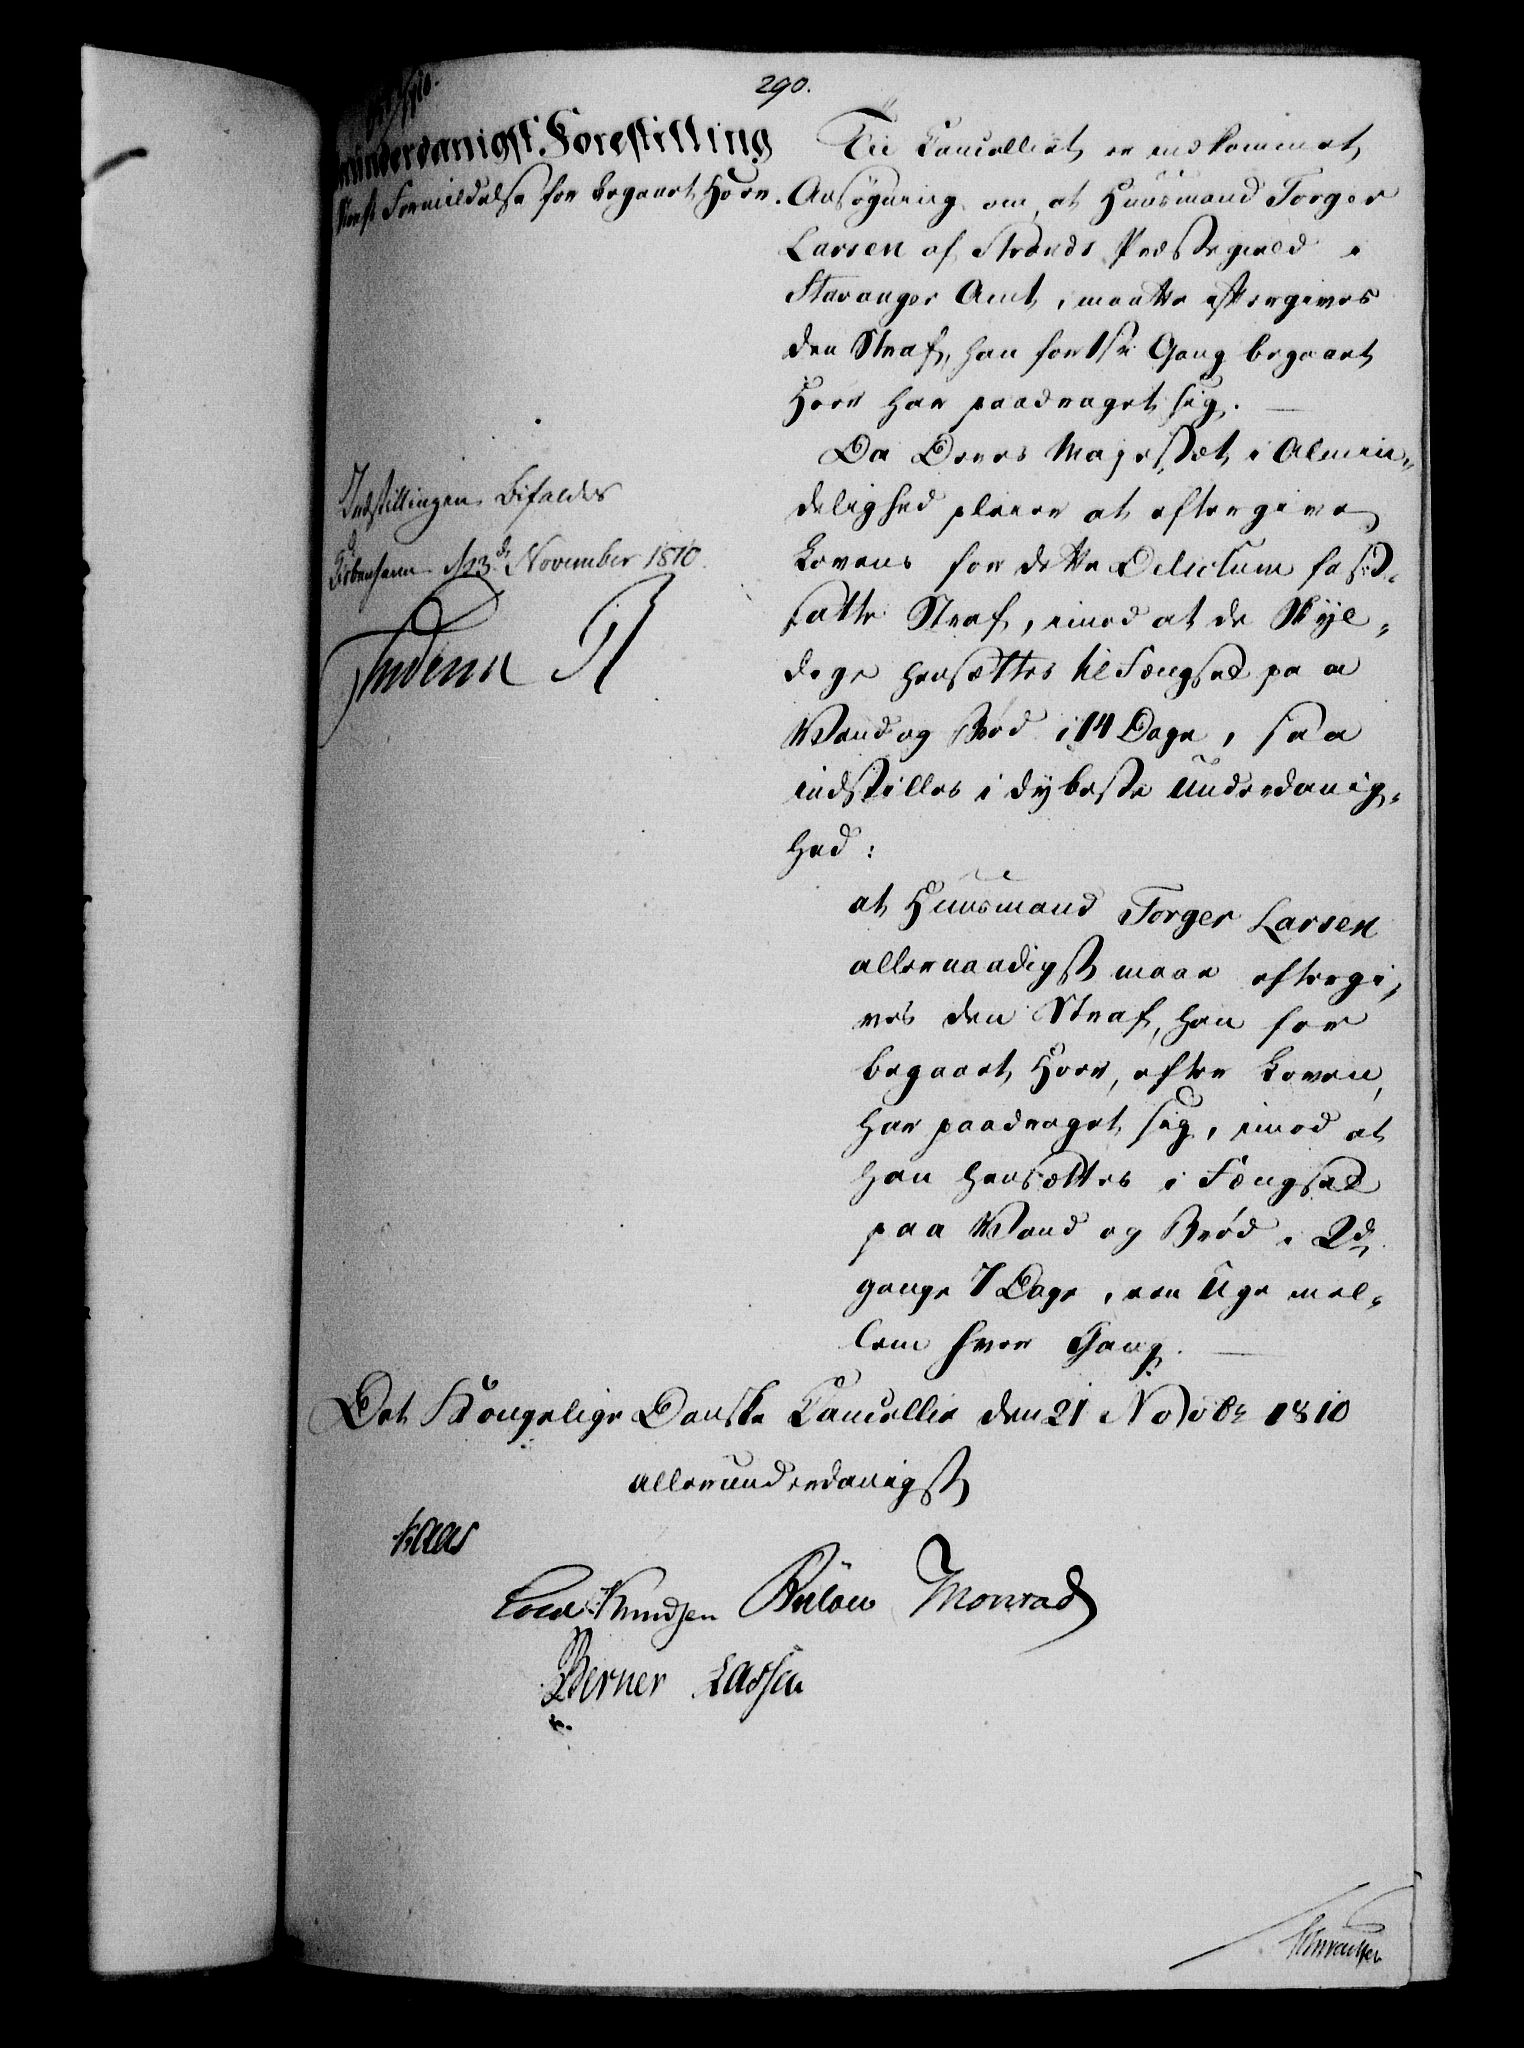 290.
allerunderdanigst Forestilling
Straffs Formildelse for begaaet Hoer.
Til Cancelliet er indkommet
Ansøgning om, at Huusmand Torger
Larsen af Strands Præstegield i
Stavanger Amt, maatte eftergives
den Straf, han for 1ste Gang begaaet
Hoer har paadraget sig.
Da Deres Majestæt i Almin-
delighed pleier at eftergive
Lovens for dette Delictum fast-
satte Straf, imod at de Skyl-
dige hensættes til Fængsel paa
Vand og Brød i 14 Dage, saa
indstilles i dybeste Underdanig-
hed:
at Huusmand Torger Larsen
allernaadigst maae eftergi-
ves den Straf, han for
begaaet Hoer, efter Loven,
har paadraget sig, imod at
han hensættes i Fængsel
paa Vand og Brød i 2de
gange 7 Dage, een Uge mel-
lem hver Gang.
Indstillingen bifaldes
Kiøbenhavn d 23de November 1810.
Frederik R
Det Kongelige Danske Cancellie den 21 Novbr 1810
allerunderdanigst
Kaas
Cold Knudsen Bülow Monrad
Berner Lassen